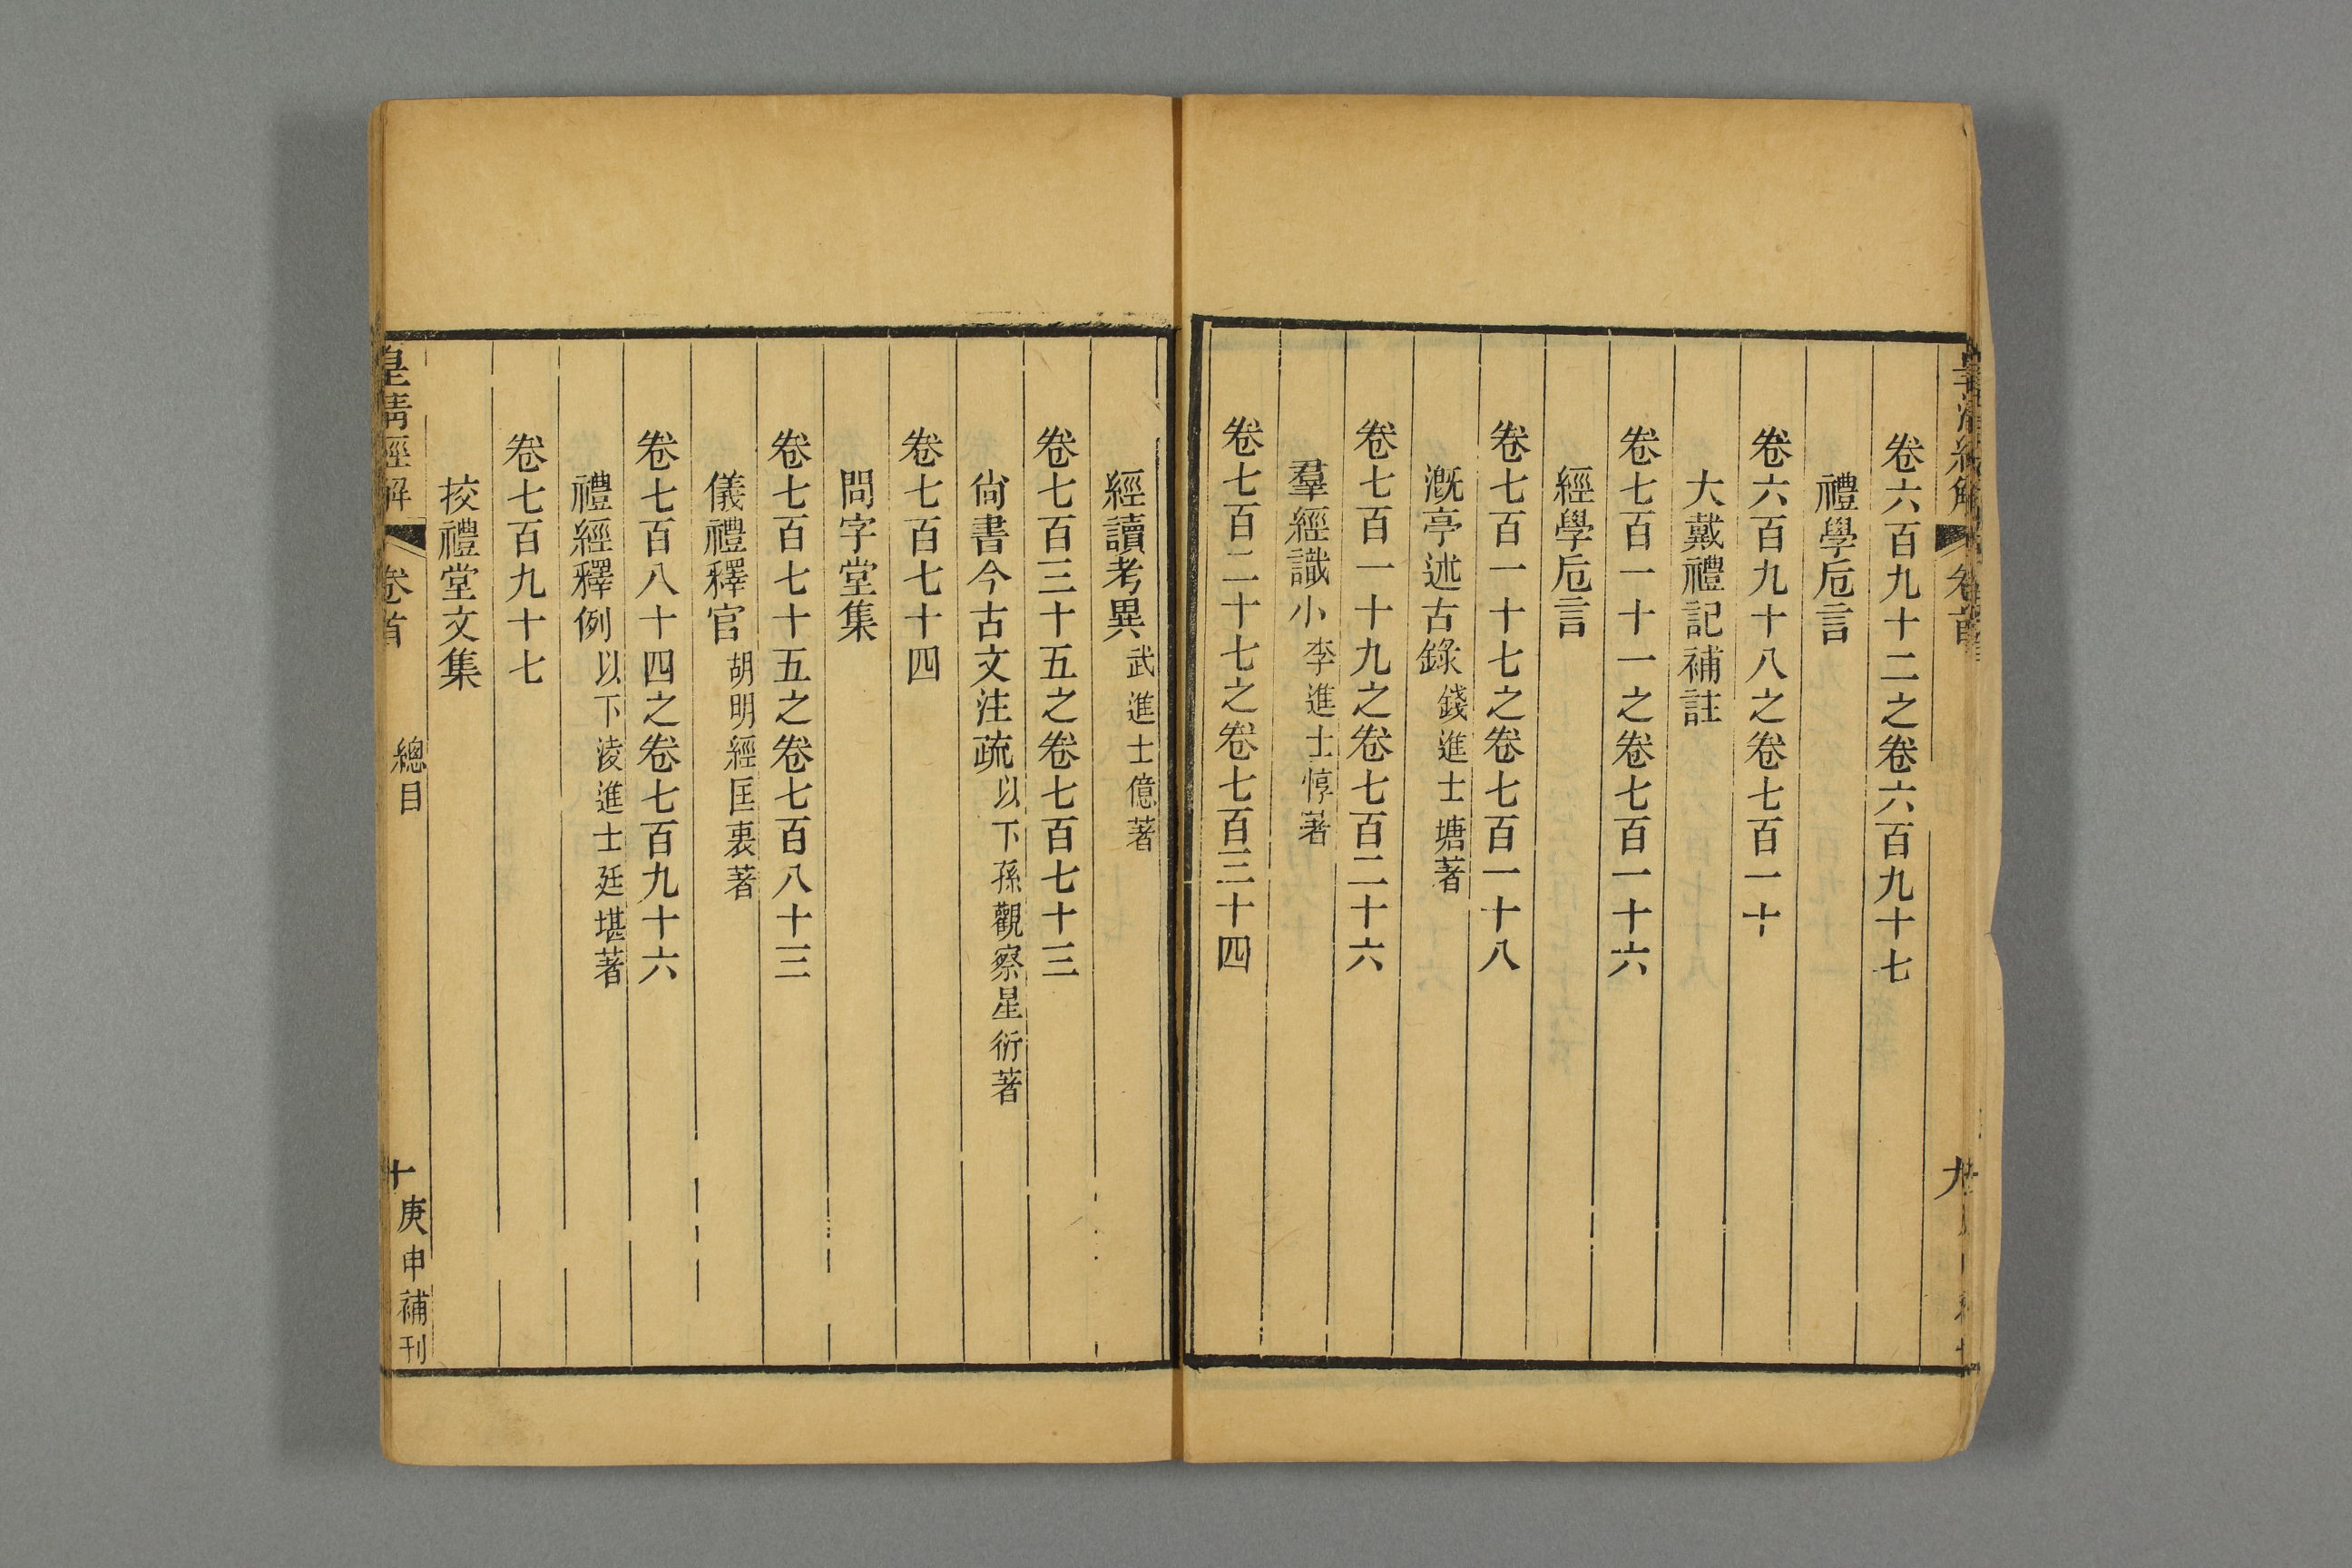 卷六百九十二之卷六百九十七
禮學卮言
卷六百九十八之卷七百一十
大戴禮記補註
卷七百一十一之卷七百一十六
經學卮言
卷七百一十七之卷七百一十八
溉亭述古錄 錢進士塘著
卷七百一十九之卷七百二十六
羣經識小 李進士惇著
卷七百二十七之卷七百三十四
經讀考異 武進士億著
卷七百三十五之卷七百七十三
尙書今古文注疏 以下孫觀察星衍著
卷七百七十四
問字堂集
卷七百七十五之卷七百八十三
儀禮釋官 胡明經匡衷著
卷七百八十四之卷七百九十六
禮經釋例 以下淩進士廷堪著
卷七百九十七
挍禮堂文集
皇清經解 卷首 總目 十 庚申補刊